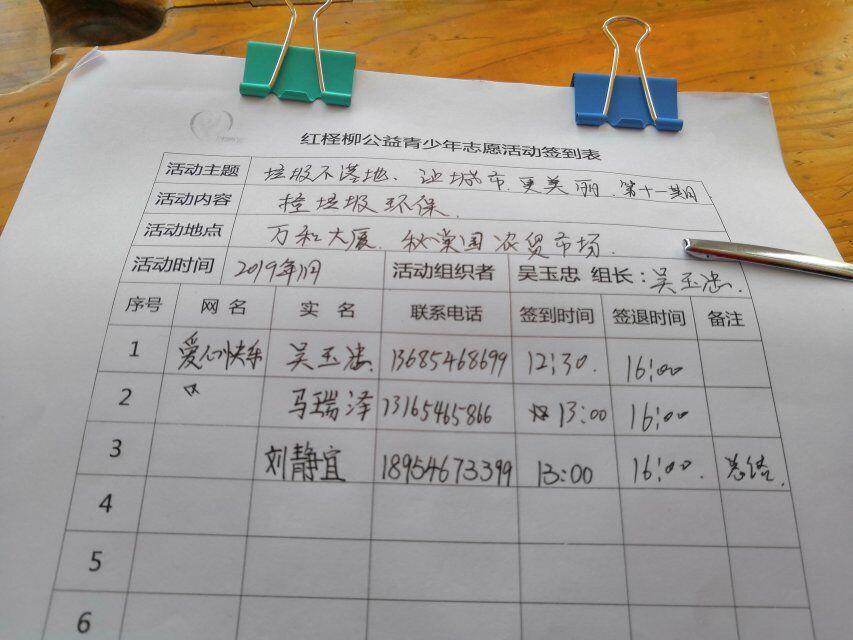 红柽柳公益青少年志愿活动签到表
活动主题 垃圾不落地、让城市更美丽 第十一期
活动内容 捡垃圾环保
活动地点 万和大厦 农贸市场
活动时间 2019年1月 活动组织者 吴玉忠 组长：吴玉忠
序号 网名 实名 联系电话 签到时间 签退时间 备注
1 爱心快乐 吴玉忠 13685468699 12:30 16:00
2 马瑞泽 13165465866 13:00 16:00
3 刘静宜 18954673399 13:00 16:00 总结
4
5
6